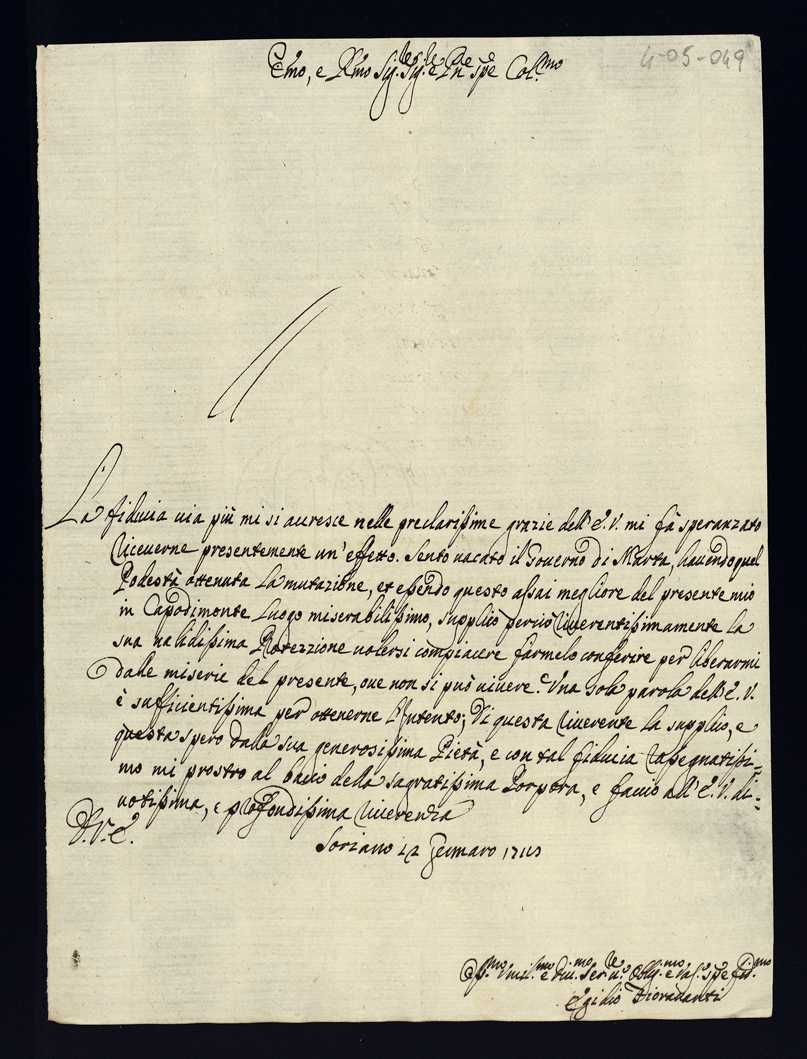 4-05-049
Em̃o, e Rm̃o Sig.re Sig.re e Pñe Spe Col.mo
La fiducia via più mi si accresce nelle preclarissime grazie dell'E.V. mi fà speranzato
riceverne presentemente un'effetto. Sento vacato il Governo di Marta, havendo quel
Podestà ottenuta la mutazione, et essendo questo assai megliore del presente mio
in Capodimonte luogo miserabilissimo, supplico perciò riverentissimamente la
sua validissima Protezzione volersi compiacere farmelo conferire per liberarmi
dalle miserie del presente, ove non si può vivere. Una sola parola dell'E.V.
è sufficientissima per ottenerne l'Intento; Di questa riverente la supplico, e
questa spero dalla sua generosissima Pietà, e con tal fiducia rassegnatissi=
mo mi prostro al bacio della sagratissima Porpora, e faccio all'E.V. di=
votissima, e profondissima riverenza
D.V.E.
Soriano 12 Gennaro
Umil.mo e Div.mo Ser.re Obblig.mo
Egidio Fioravanti